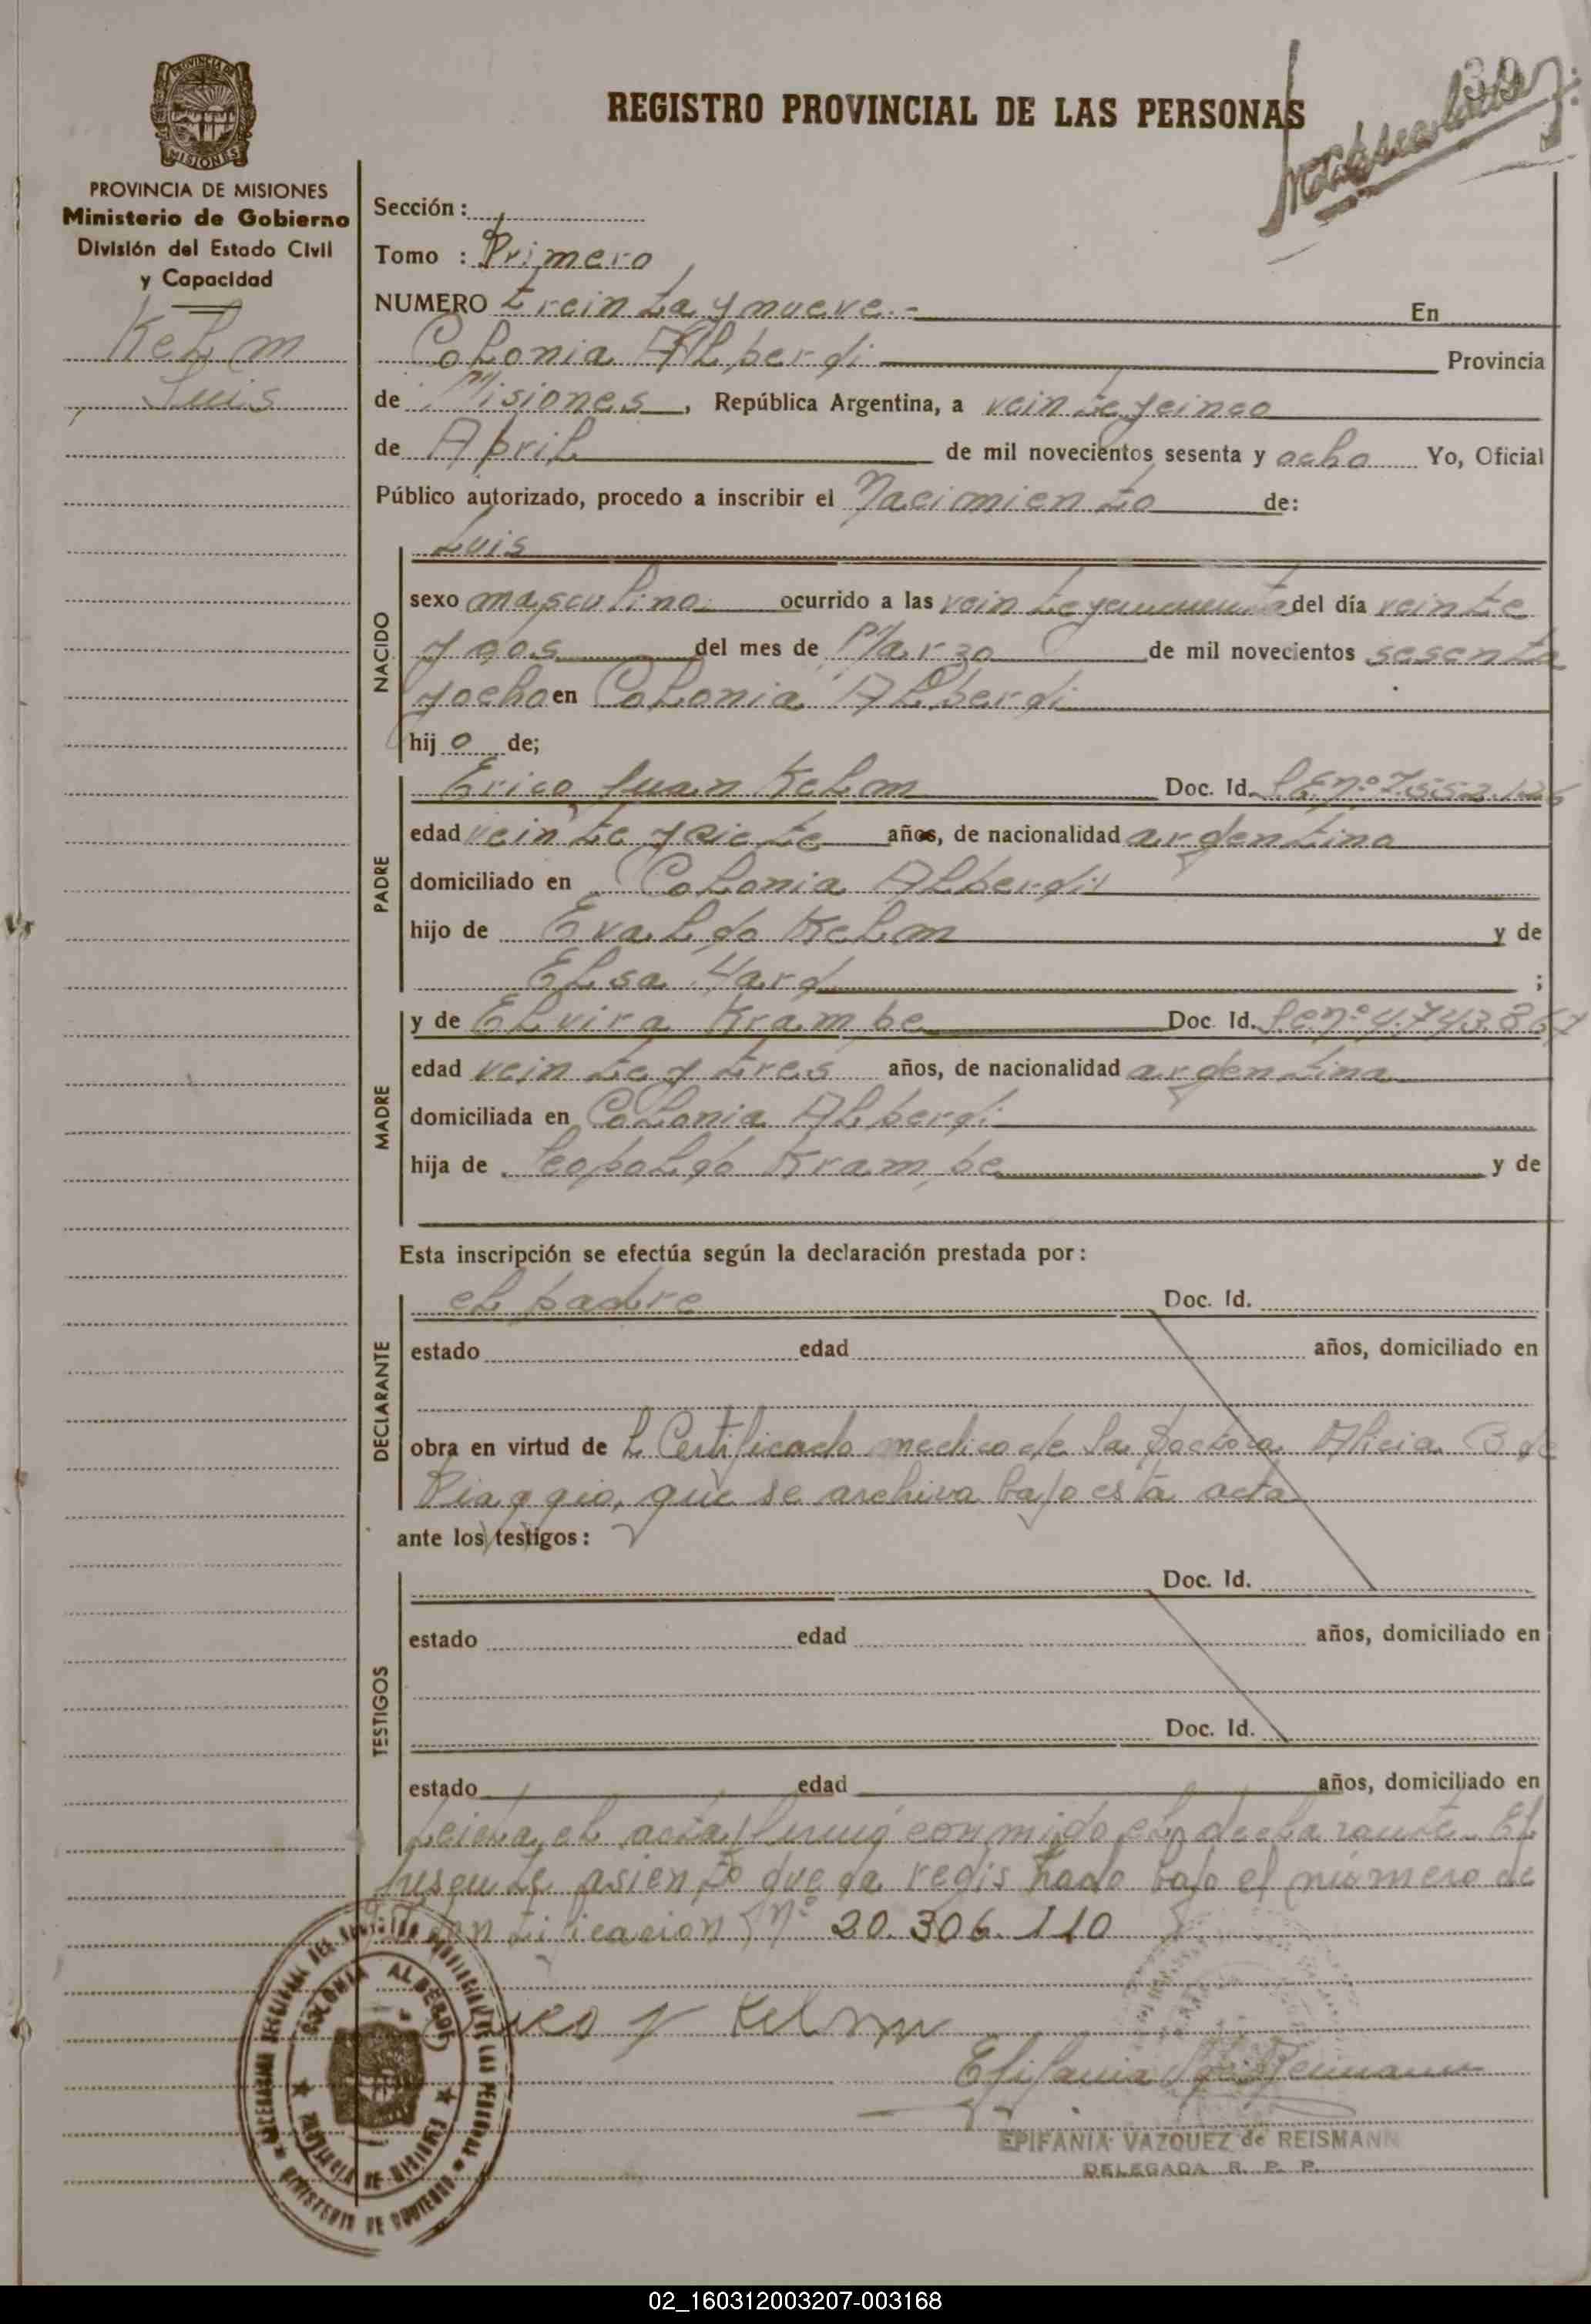 REGISTRO PROVINCIAL DE LAS PERSONAS
39
MISIONES
PROVINCIA DE MISIONES
Ministerio de Gobierno
División del Estado Civil
y Capacidad
Kelm
Luis
Sección:
Tomo : Primero
NUMERO treinta y nueve.- En
Colonia Alberdi Provincia
de Misiones, República Argentina, a veinte y cinco
de Abril de mil novecientos sesenta y ocho Yo, Oficial
Público autorizado, procedo a inscribir el Nacimiento de:
NACIDO
Luis
sexo masculino ocurrido a las del día veinte
y dos del mes de Marzo de mil novecientos sesenta
y ocho en Colonia Alberdi
hijo de;
PADRE
Erico Juan Kelm Doc. Id. L.E. nº 7.552.126
edad veinte y siete años, de nacionalidad argentina
domiciliado en Colonia Alberdi
hijo de Evaldo Kelm y de
Elsa Hard ;
MADRE
y de Elvira Krambe Doc. Id.
edad veinte y tres años, de nacionalidad argentina
domiciliada en Colonia Alberdi
hija de Leopoldo Krambe y de
Esta inscripción se efectúa según la declaración prestada por:
DECLARANTE
el padre Doc. Id.
estado edad años, domiciliado en
obra en virtud de l Certificado medico de la Doctora Alicia B de
Piaggio, que se archiva bajo esta acta
ante los testigos:
TESTIGOS
Doc. Id.
estado edad años, domiciliado en
Doc. Id.
estado edad años, domiciliado en
Leida el acta, conmigo el declarante. El
presente asiento queda registrado bajo el número de
identificación nº 20.306.110
Erico J Kelm
EPIFANIA VAZQUEZ de REISMANN
DELEGADA R. P. P.
COLONIA ALBERDI
PROVINCIA DE MISIONES
MINISTERIO DE GOBIERNO
02_160312003207-003168